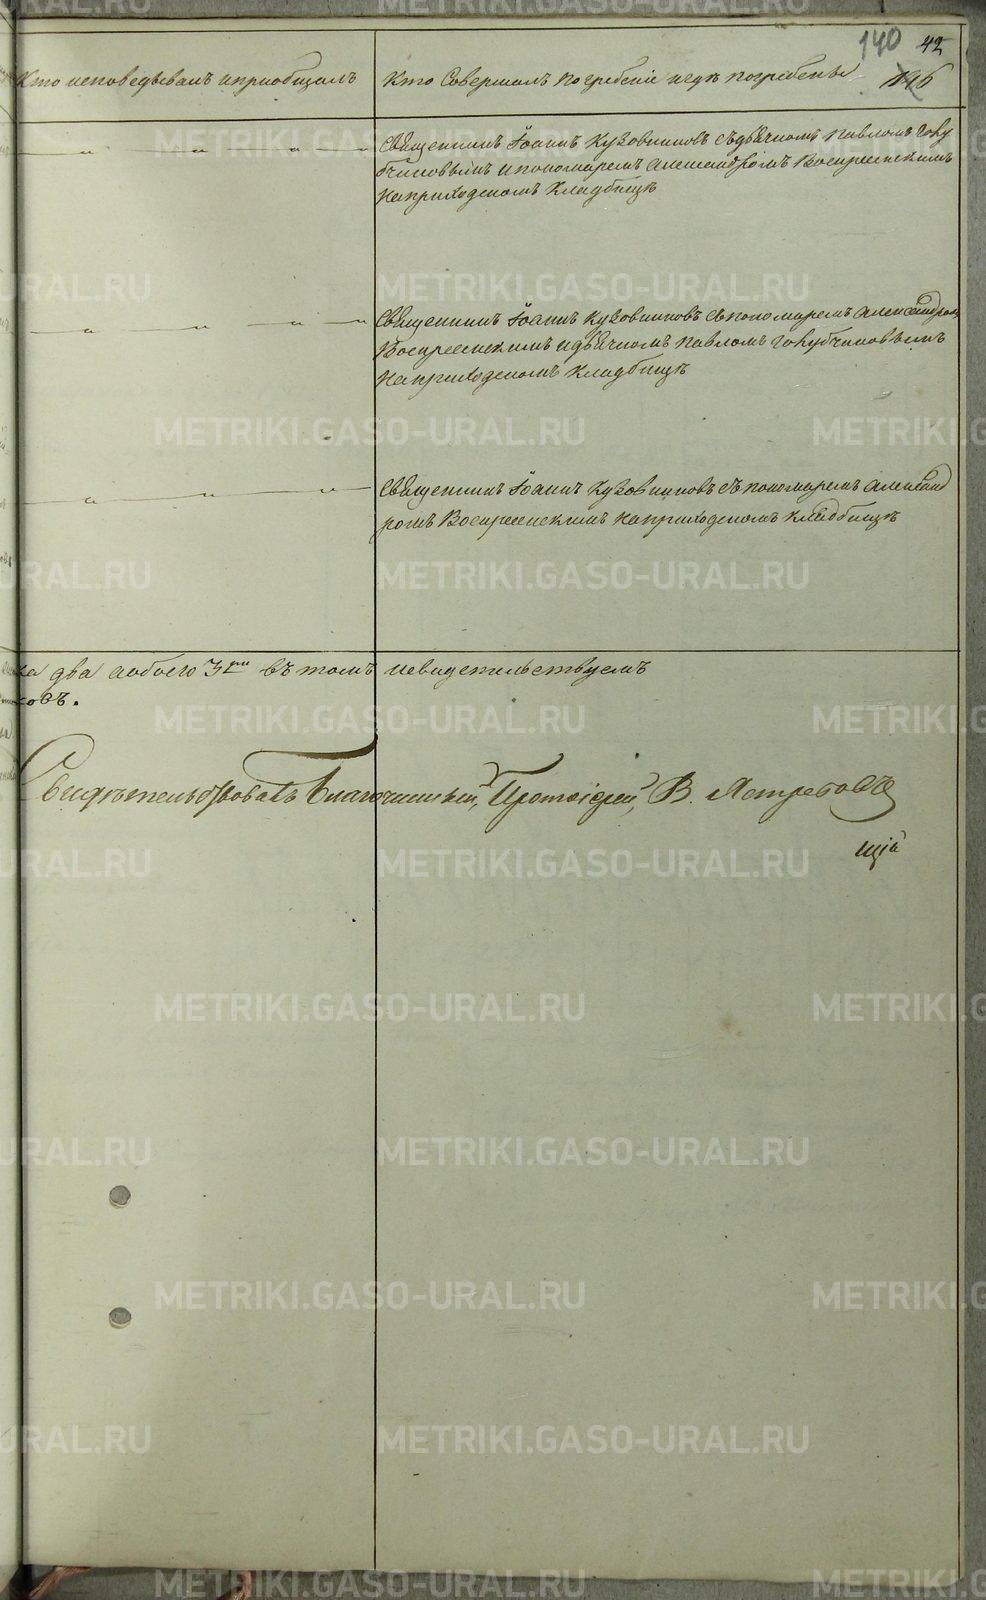 140 42
146
Кто исповѣдывалъ и приобщалъ
Кто Совершалъ погребеніе и гдѣ погребены
Священникъ Іоаннъ Кузовниковъ съ дьячкомъ Павломъ Голу
бчиковымъ и пономаремъ Александромъ Воскресенскимъ
на приходскомъ кладбищѣ
Священникъ Іоаннъ Кузовниковъ съ пономаремъ Александром
Воскресенскимъ и дьячкомъ Павломъ Голубчиковымъ
на приходскомъ кладбищѣ
Священникъ Іоаннъ Кузовниковъ съ пономаремъ Александ
ромъ Воскресенскимъ на приходскомъ кладбищѣ
два а обоего 3 въ томъ и свидетельствуемъ
овъ.
Свидѣтельствовалъ Благочинный, Протоіерей, В. Ястребовъ
METRIKI.GASO-URAL.RU